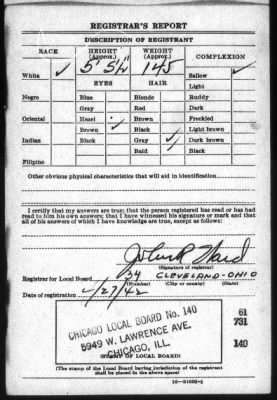 REGISTRAR'S REPORT
DESCRIPTION OF REGISTRANT
RACE HEIGHT (Approx.) WEIGHT (Approx.) COMPLEXION
5' 5½" 145
White ✓ Sallow ✓
EYES HAIR Light
Negro Blue Blonde Ruddy
Gray Red Dark
Oriental Hazel Brown Freckled
Brown ✓ Black Light brown
Indian Gray ✓ Dark brown
Bald Black
Filipino
Other obvious physical characteristics that will aid in identification
I certify that my answers are true; that the person registered has read or has had
read to him his own answers; that I have witnessed his signature or mark and that
all of his answers of which I have knowledge are true, except as follows:
John R Ward
(Signature of registrar)
Registrar for Local Board 34 CLEVELAND-OHIO
(Number) (City or county) (State)
Date of registration 4/27/42
61
731
140
CHICAGO LOCAL BOARD No. 140
5949 W. LAWRENCE AVE.
CHICAGO, ILL.
(STAMP OF LOCAL BOARD)
(The stamp of the Local Board having jurisdiction of the registrant
shall be placed in the above space)